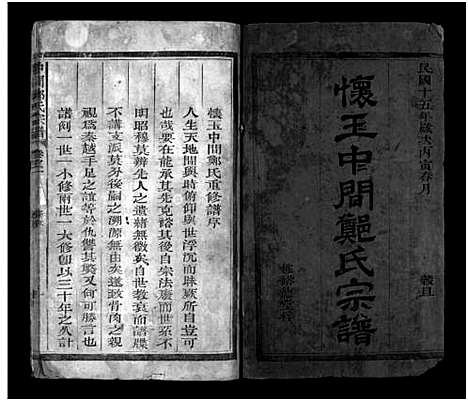 民國十五年歲次丙寅春月
懷玉中間鄭氏宗譜
懷玉中間鄭氏重修譜序
人生天地間與時俯仰與世浮沉而昧所自豈可
乎要在能承其先克裕其後自宗法廢而世系不
明昭穆莫辨先人之遺緒無徵矣自世教衰而譜牒
不講支派莫分後嗣之溯源無由矣遂致骨肉
視為秦越手足之誼等於仇讐其獘又何可勝言也
譜例一世一小修兩世一大修夫以三十年之久計